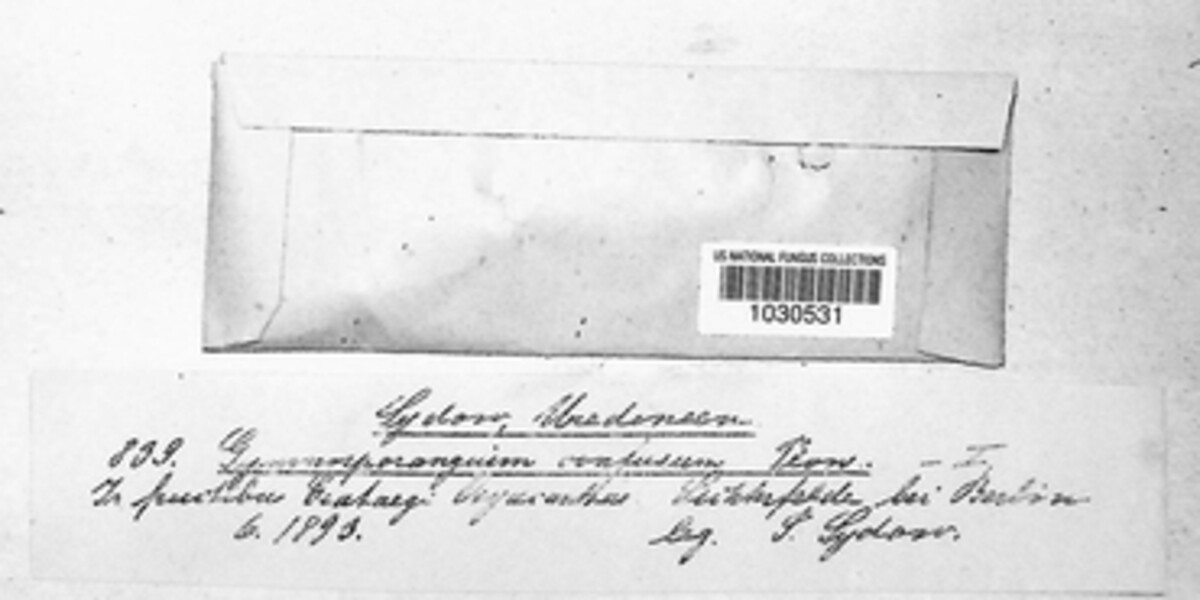 US NATIONAL FUNGUS COLLECTIONS
1030531
Sydow, Uredineen
839. Gymnosporangium confusum Plow. – I.
In fructibus Crataegi Oxyacanthae Lichterfelde bei Berlin
6. 1893. leg. P. Sydow.